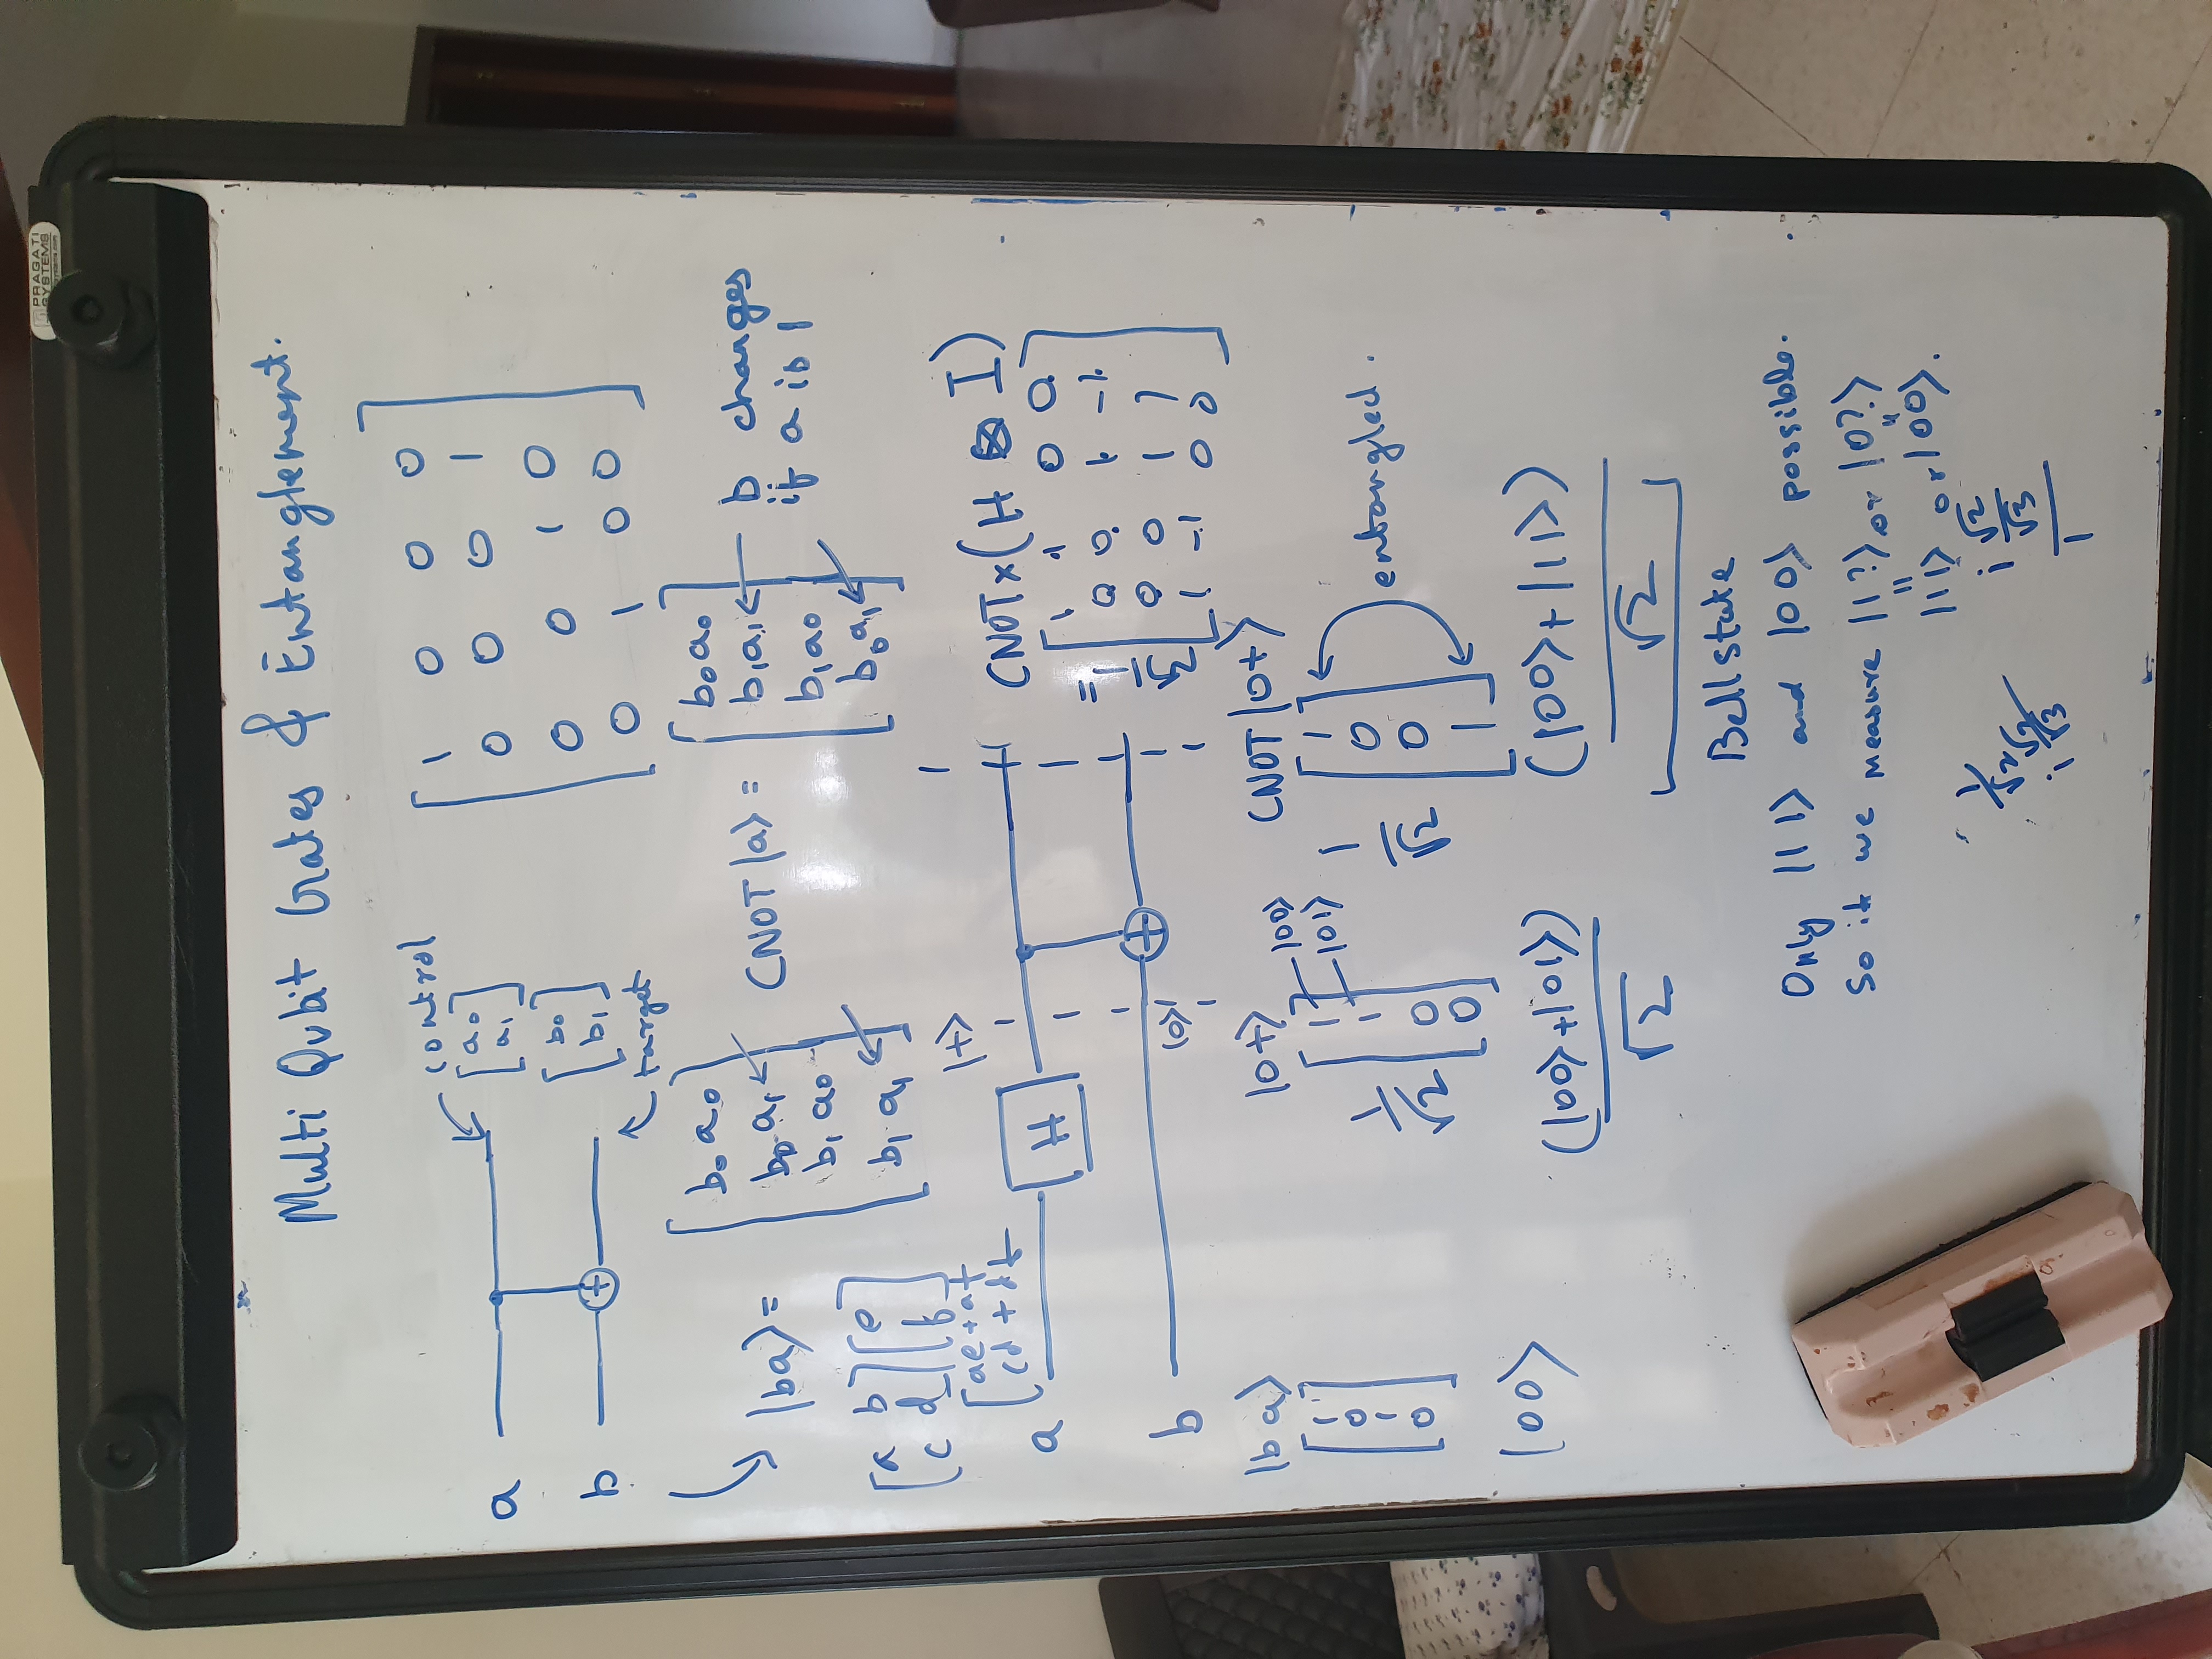 PRAGATI
SYSTEMS
Multi Qubit Gates & Entanglement.
control
a
[a₀
a₁]
b
[b₀
b₁]
target
[1 0 0 0
0 0 0 1
0 0 1 0
0 1 0 0]
|ba⟩ =
[b₀ a₀
b₀ a₁
b₁ a₀
b₁ a₁]
CNOT |a⟩ =
[b₀a₀
b₁a₁
b₁a₀
b₀a₁]
b changes
if a is 1
[a b
c d] [e
f]
[ae + af
cd + df
|+⟩
a
H
b
|0⟩
CNOT x (H ⊗ I)
= 1/√2
[1 1 0 0
0 0 1 -1
0 0 1 1
1 -1 0 0]
|b a⟩
[1
0
1
0]
|00⟩
|0+⟩
1/√2 [1
1
0
0]
|00⟩
|01⟩
(|00⟩+|01⟩)
√2
CNOT |0+⟩
1/√2 [1
0
0
1]
entangled.
(|00⟩+|11⟩)
√2
Bell state
Only |11⟩ and |00⟩ possible.
So if we measure |1?⟩ or |0?⟩
|| ||
|11⟩ or |00⟩.
1/√2
i √2/√3
i √2/√3
1